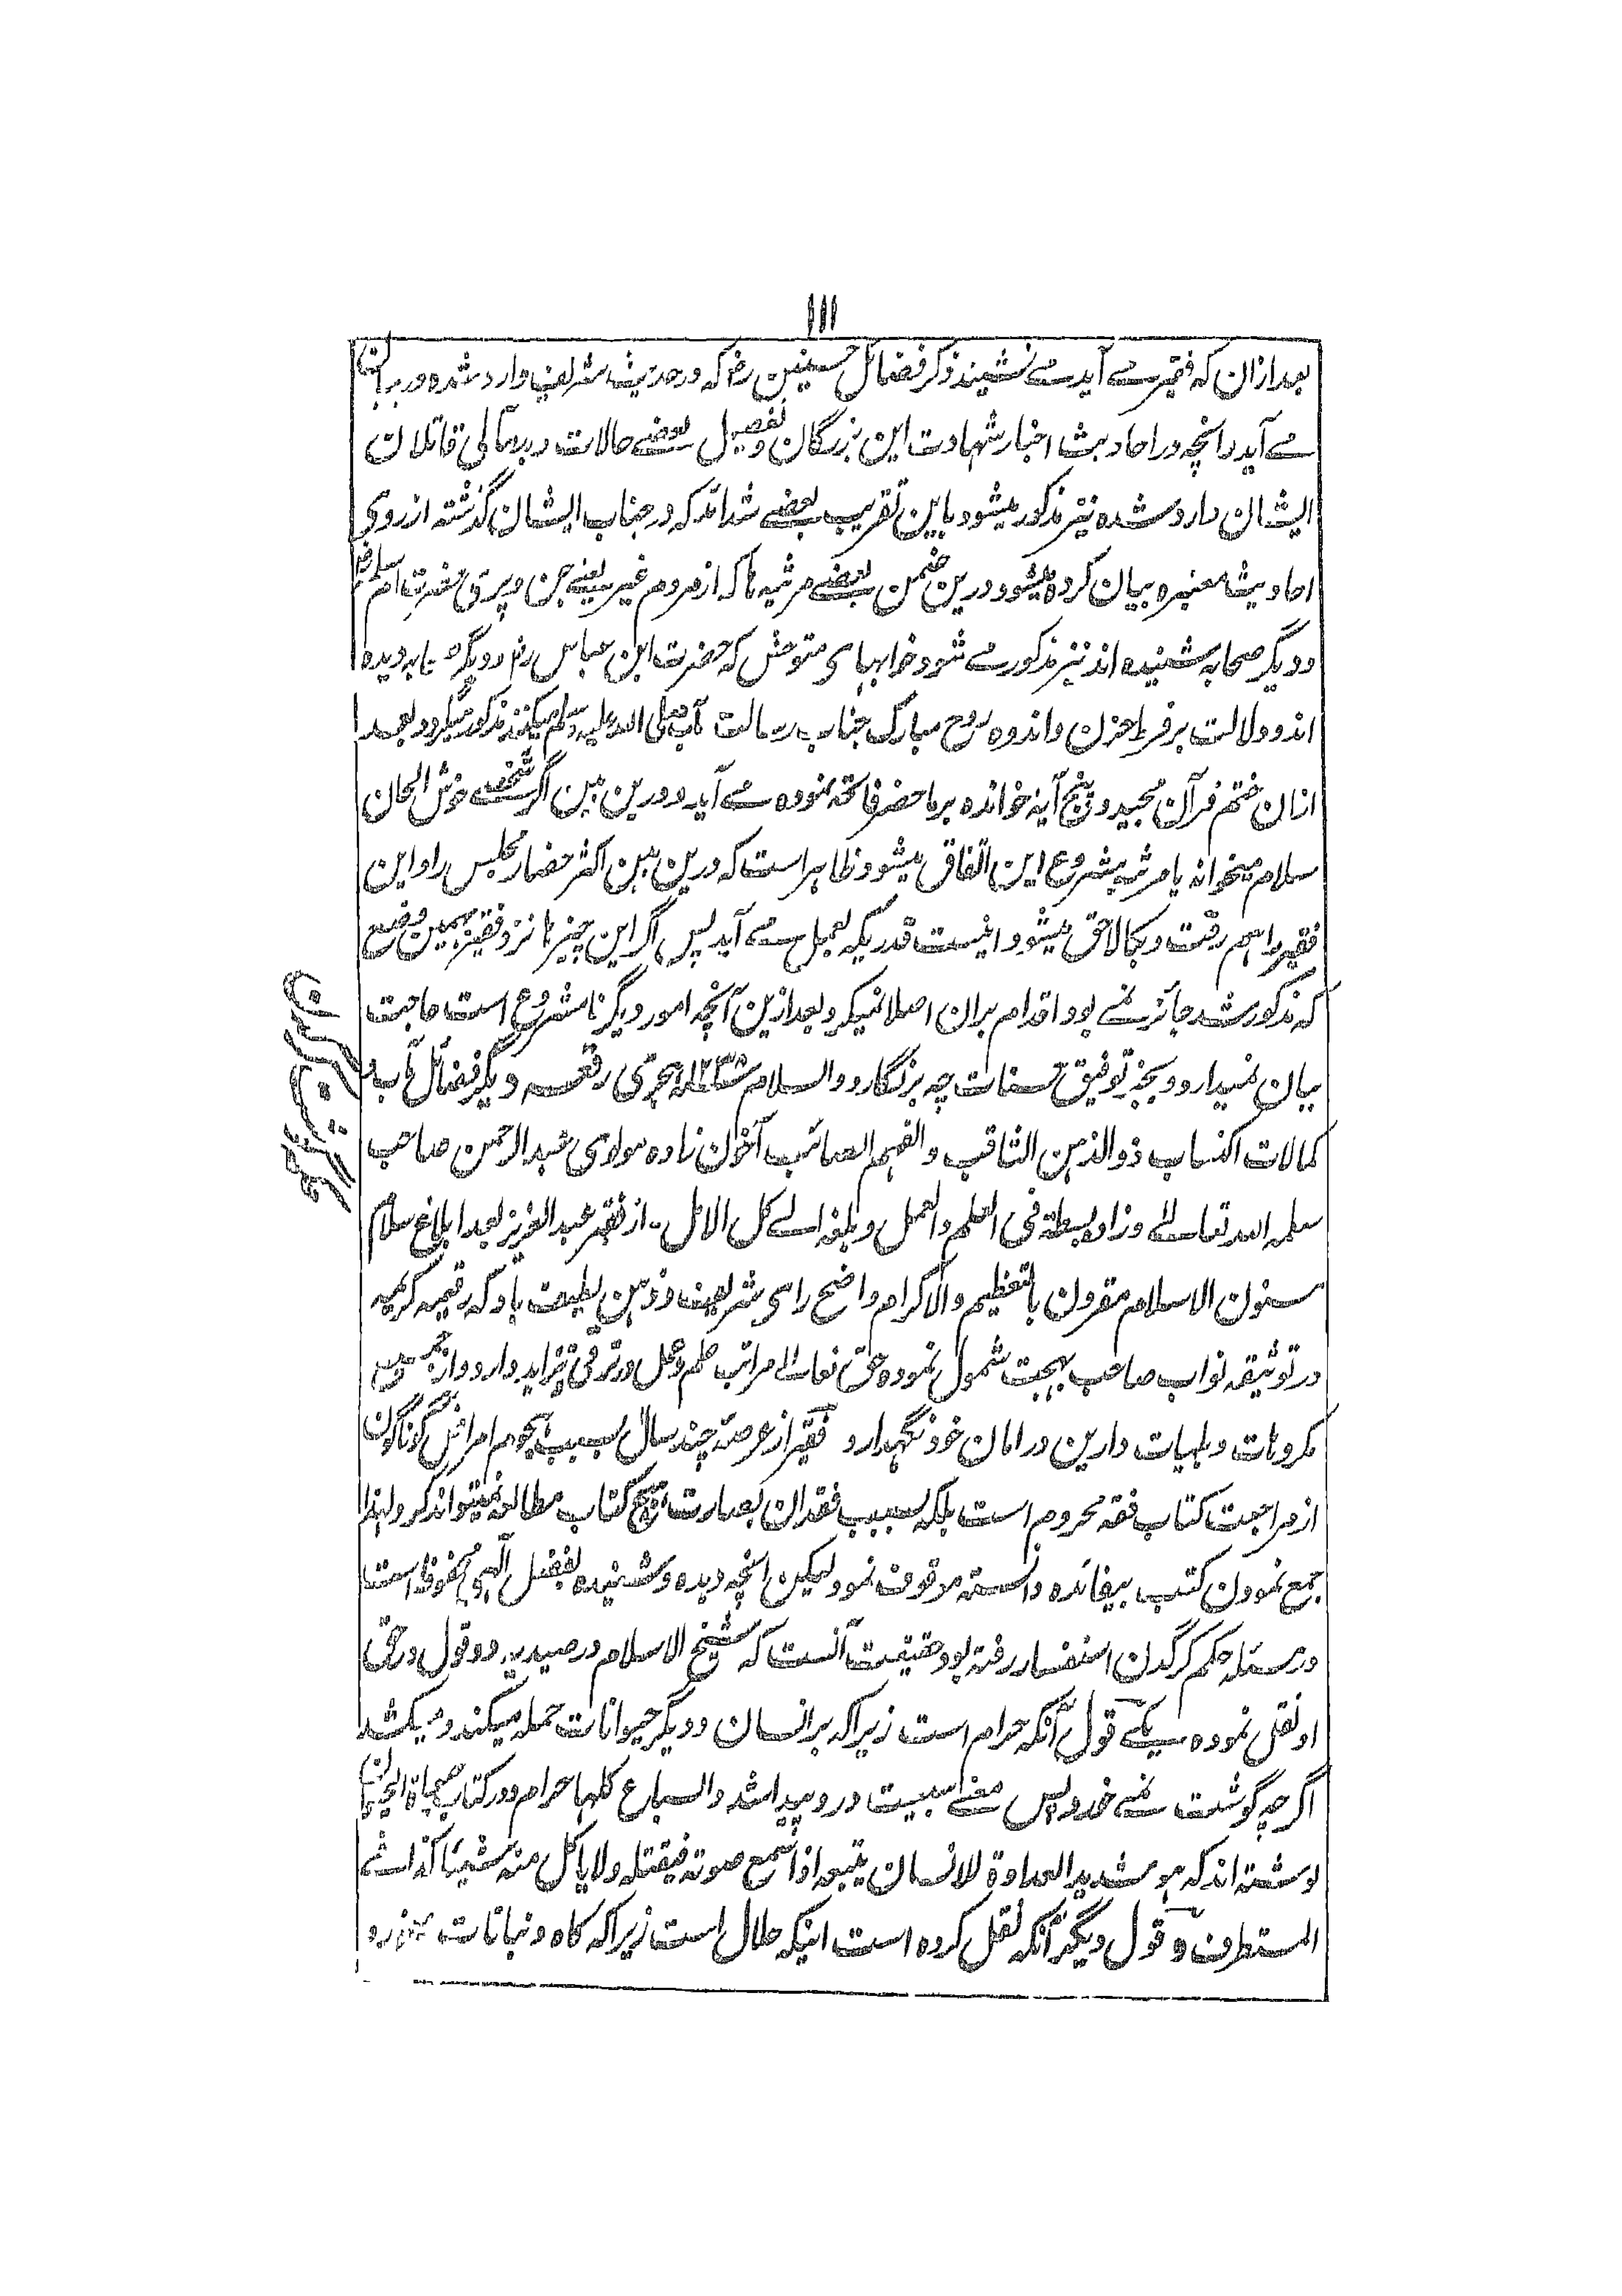 ۱۱۱
بعد ازان که فقیر مے آید مے نشیند ذکر فضائل حسنین رضہ که در حدیث شریف وارد شده در بیان
مے آید و انچه در احادیث اخبار شهادت این بزرگان و تفصیل بعضے حالات و بد مآلی قاتلان
ایشان وارد شده نیز مذکور میشود باین تقریب بعضے شدائد که در جناب ایشان گذشته از روی
احادیث معتبره بیان کرده میشود و درین ضمن بعضے مرثیه ها که از مردم غیر یعنے جن و پری حضرت ام سلمه رضہ
و دیگر صحابه شنیده اند نیز مذکور مے شود و خوابهای متوحش که حضرت ابن عباس رضہ و دیگر صحابه دیده
اند و دلالت بر فرط حزن و اندوه روح مبارک جناب رسالت مآب صلی الله علیه وسلم میکنند مذکور میگردد بعد
ازان ختم قرآن مجید و پنج آیه خوانده بر ما حضر فاتحه نموده مے آید و درین بین اگر شخصے خوش الحان
سلام میخواند یا مرثیه مشروع این اتفاق میشود و ظاهر است که درین بین اکثر حضار مجلس را و این
فقیر را هم رقت و بکا لاحق میشود اینست قدریکه بعمل مے آید پس اگر این چیزها نزد فقیر بهمین وضع
که مذکور شد جائز نمے بود اقدام بران اصلا نمیکرد و بعد ازین آنچه امور دیگر نا مشروع است حاجت
بیان نمیدارد و بجز توفیق حسنات چه برنگارد و السلام ۱۲۳۸ هجری رقعه دیگر فضائل مآب
کمالات اکتساب ذو الذهن الثاقب و الفهم الصائب آخون زاده مولوی عبد الرحمن صاحب
سلمه الله تعالے و زاد بسطة فی العلم و العمل و بلغه الے کل الامل - از فقیر عبد العزیز بعد ابلاغ سلام
مسنون الاسلام مقرون بالتعظیم و الاکرام واضح رای شریف و ذهن لطیف باد که رقیمه کریمه
در توثیقه نواب صاحب بهجت شمول نموده حق تعالے مراتب علم و عمل در ترقی و تزاید دارد و از
مکروهات و بلیات دارین در امان خود نگهدارد فقیر از عرصه چند سال بسبب هجوم امراض گوناگون
از مراجعت کتاب فقه محروم است بلکه بسبب فقدان بصارت هیچ کتاب مطالعه نمیتواند کرد و لهذا
جمع نمودن کتب بیفائده دانسته موقوف نمود لیکن انچه دیده و شنیده بفضل الهی محفوظ است
در مسئله حکم کرگدن استفسار رفته بود حقیقت آنست که شیخ الاسلام در صیدیه دو قول در حق
او نقل نموده یکے قول آنکه حرام است زیرا که بر انسان و دیگر حیوانات حمله میکند و میکشد
اگر چه گوشت نمے خورد پس معنے سبیت در و پیدا شد و السباع کلها حرام و در کتاب حیاة الحیوان
نوشته اند که هو شدید العداوة للانسان یتبعه اذا سمع صوته فیقتله و لا یاکل منه شیئا کذا فے
المستطرف و قول دیگر آنکه نقل کرده است اینکه حلال است زیرا که کاه و نباتات میخورد